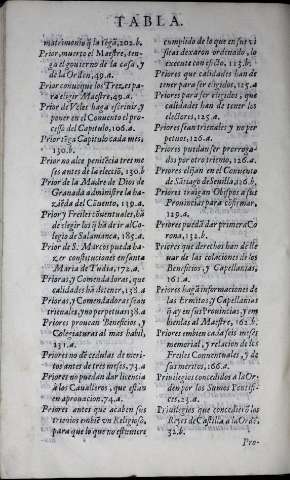 TABLA.
matrimonio q̃ la tẽgã, 202.b.
Prior, muerto el Maestre, ten-
ga el gouierno de la casa, y
de la Orden, 49.a.
Prior conuoque los Treze pa-
ra elegir Maestre, 49.a.
Prior de Veles haga escriuir, y
poner en el Conuento el pro-
cesso del Capitulo, 106.a.
Prior tẽga Capitulo cada mes,
130.b.
Prior no alce penitẽcia tres me
ses antes de la eleciõ, 130.b
Prior de la Madre de Dios de
Granada administre la ha-
ziẽda del Cõuento, 139.a.
Prior y Freiles cõuentuales, hã
de elegir los q̃ hã de ir al Co-
legio de Salamanca, 185.a.
Prior de S. Marcos pueda ha-
zer constituciones en santa
Maria de Tudia, 172.a.
Prioras, y Comendadoras, que
calidades hã de tener, 138.a
Prioras, y Comendadoras sean
trienales, y no perpetuas 138.a
Priores prouean Beneficios, y
Colegiaturas al mas habil,
131.a.
Priores no dẽ cedulas de meri-
tos antes de tres meses, 73.a
Priores no puedan dar licencia
à los Caualleros, que estan
en aprouacion, 74.a.
Priores antes que acaben sus
trienios embiẽ vn Religioso,
para que lo que no estuuiere
cumplido de lo que en sus vi
sitas dexaron ordenado, lo
execute con efecto, 115.b.
Priores que calidades han de
tener para ser elegidos, 125.a
Priores para ser elegidos, que
calidades han de tener los
electores, 125.a.
Priores sean trienales y no per
petuos, 126.a.
Priores puedan ser prorroga-
dos por otro trienio, 126.a.
Priores elijan en el Conuento
de Sãtiago de Seuilla, 126.b.
Priores traigan Obispos a sus
Prouincias para cõfirmar,
129.a.
Priores puedã dar primera Co
rona, 132.b.
Priores que derechos han de lle
uar de las colaciones de los
Beneficios, y Capellanias,
161.a.
Priores hagã informaciones de
las Ermitas y Capellanias
q̃ ay en sus Prouincias, y em
bienlas al Maestre, 162.b.
Priores embien cada seis meses
memorial, y relacion de los
Freiles Conuentuales, y de
sus meritos, 166.a.
Priuilegios concedidos a la Or
den por los Sumos Pontifi-
ces, 23.a.
Priuilegios que concedierõ los
Reyes de Castilla a la Ordẽ,
32.b.
Pro-